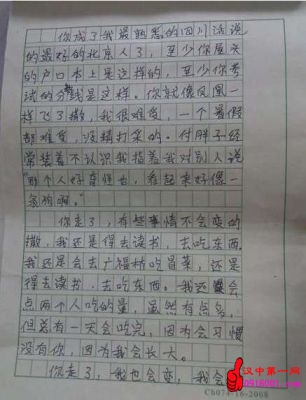 你成了我最熟悉的四川话说
的最好的北京人了,至少你屋头
的户口本上是这样的,至少你考
试的分数是这样。你就像凤凰一
样飞了撒,我很难受,一个暑假
都难受,没精打采的。付胖子经
常装着不认识我指着我对别人说
"那个人好奇怪也,看起来好像一
条狗啊。"
你走了,有些事情不会变的
撒,我还是得去读书,去吃东西。
我还是会去广福桥吃冒菜,还是
得去读书,去吃东西。我还会
点两个人吃的量,虽然有点多,
但总有一天会吃完,因为会习惯
没有你,因为我会长大。
你走了,我也会变,我会
Ch074-16-2008
汉中第一网